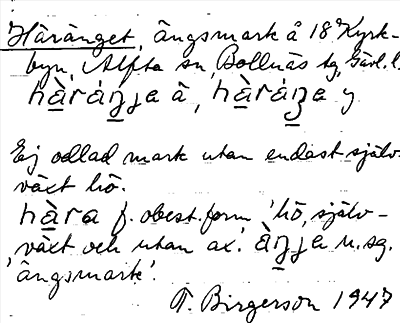 Häränget, ängsmark å 18 Kyrk-
byn, Alfta sn, Bollnäs tg, Gävl. l.
hàra
Ej odlad mark utan endast själv-
växt hö.
hàra f. obest. form 'hö, själv-
växt och utan ax.' n. sg.
'ängsmark'.
T. Birgerson 1947